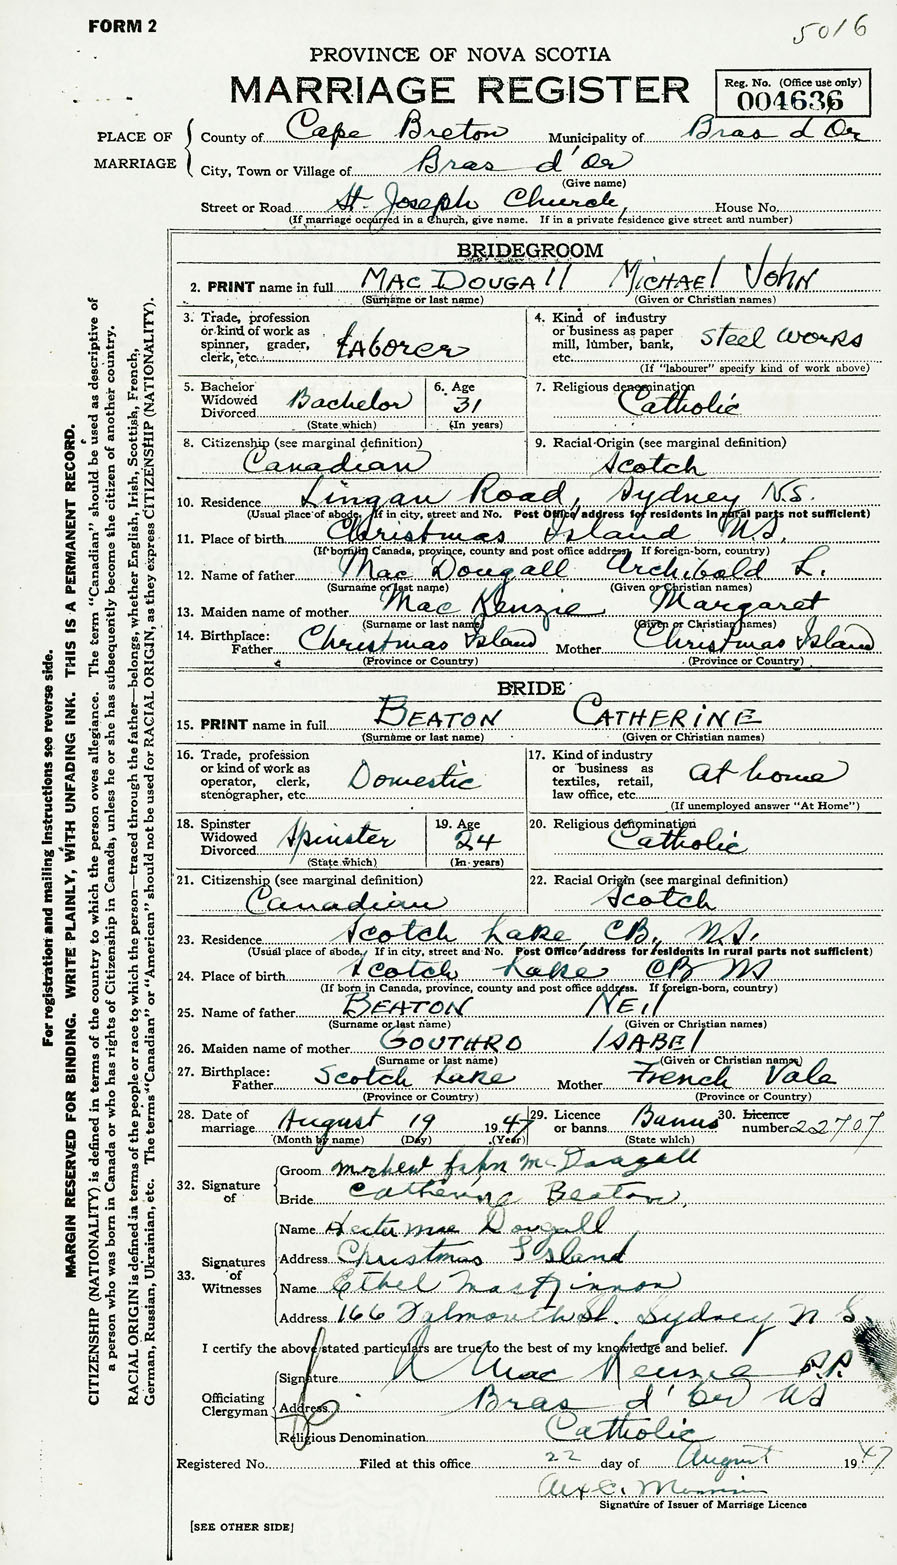 FORM 2
5016
PROVINCE OF NOVA SCOTIA
MARRIAGE REGISTER
Reg. No. (Office use only)
004636
PLACE OF MARRIAGE
County of Cape Breton Municipality of Bras d'Or
City, Town or Village of Bras d'Or
(Give name)
Street or Road St. Joseph Church, House No.
(If marriage occurred in a Church, give name. If in a private residence give street and number)
BRIDEGROOM
2. PRINT name in full MacDougall Michael John
(Surname or last name) (Given or Christian names)
3. Trade, profession or kind of work as spinner, grader, clerk, etc. Laborer
4. Kind of industry or business as paper mill, lumber, bank, etc. Steel Works
(If "labourer" specify kind of work above)
5. Bachelor Widowed Divorced Bachelor
(State which)
6. Age 31
(In years)
7. Religious denomination Catholic
8. Citizenship (see marginal definition) Canadian
9. Racial Origin (see marginal definition) Scotch
10. Residence Lingan Road, Sydney N.S.
(Usual place of abode. If in city, street and No. Post Office address for residents in rural parts not sufficient)
11. Place of birth Christmas Island N.S.
(If born in Canada, province, county and post office address. If foreign-born, country)
12. Name of father MacDougall Archibald L.
(Surname or last name) (Given or Christian names)
13. Maiden name of mother MacKenzie Margaret
(Surname or last name) (Given or Christian names)
14. Birthplace: Father Christmas Island Mother Christmas Island
(Province or Country) (Province or Country)
BRIDE
15. PRINT name in full Beaton Catherine
(Surname or last name) (Given or Christian names)
16. Trade, profession or kind of work as operator, clerk, stenographer, etc. Domestic
17. Kind of industry or business as textiles, retail, law office, etc. At home
(If unemployed answer "At Home")
18. Spinster Widowed Divorced Spinster
(State which)
19. Age 24
(In years)
20. Religious denomination Catholic
21. Citizenship (see marginal definition) Canadian
22. Racial Origin (see marginal definition) Scotch
23. Residence Scotch Lake, CB, N.S.
(Usual place of abode. If in city, street and No. Post Office address for residents in rural parts not sufficient)
24. Place of birth Scotch Lake CB NS
(If born in Canada, province, county and post office address. If foreign-born, country)
25. Name of father Beaton Neil
(Surname or last name) (Given or Christian names)
26. Maiden name of mother Gouthro Isabel
(Surname or last name) (Given or Christian names)
27. Birthplace: Father Scotch Lake Mother French Vale
(Province or Country) (Province or Country)
28. Date of marriage August 19 1947
(Month by name) (Day) (Year)
29. Licence or banns Banns
(State which)
30. Licence number 22707
32. Signature of
Groom Michael John McDougall
Bride Catherine Beaton,
33. Signatures of Witnesses
Name Hector MacDougall
Address Christmas Island
Name Ethel MacKinnon
Address 166 Falmouth St. Sydney N S.
I certify the above stated particulars are true to the best of my knowledge and belief.
Officiating Clergyman
Signature MacKenzie P.P.
Address Bras d'Or NS
Religious Denomination Catholic
Registered No. Filed at this office 22 day of August 1947
Signature of Issuer of Marriage Licence
[SEE OTHER SIDE]
For registration and mailing instructions see reverse side.
MARGIN RESERVED FOR BINDING. WRITE PLAINLY, WITH UNFADING INK. THIS IS A PERMANENT RECORD.
CITIZENSHIP (NATIONALITY) is defined in terms of the country to which the person owes allegiance. The term "Canadian" should be used as descriptive of
a person who was born in Canada or who has rights of Citizenship in Canada, unless he or she has subsequently become the citizen of another country.
RACIAL ORIGIN is defined in terms of the people or race to which the person—traced through the father—belongs, whether English, Irish, Scottish, French,
German, Russian, Ukrainian, etc. The terms "Canadian" or "American" should not be used for RACIAL ORIGIN, as they express CITIZENSHIP (NATIONALITY).